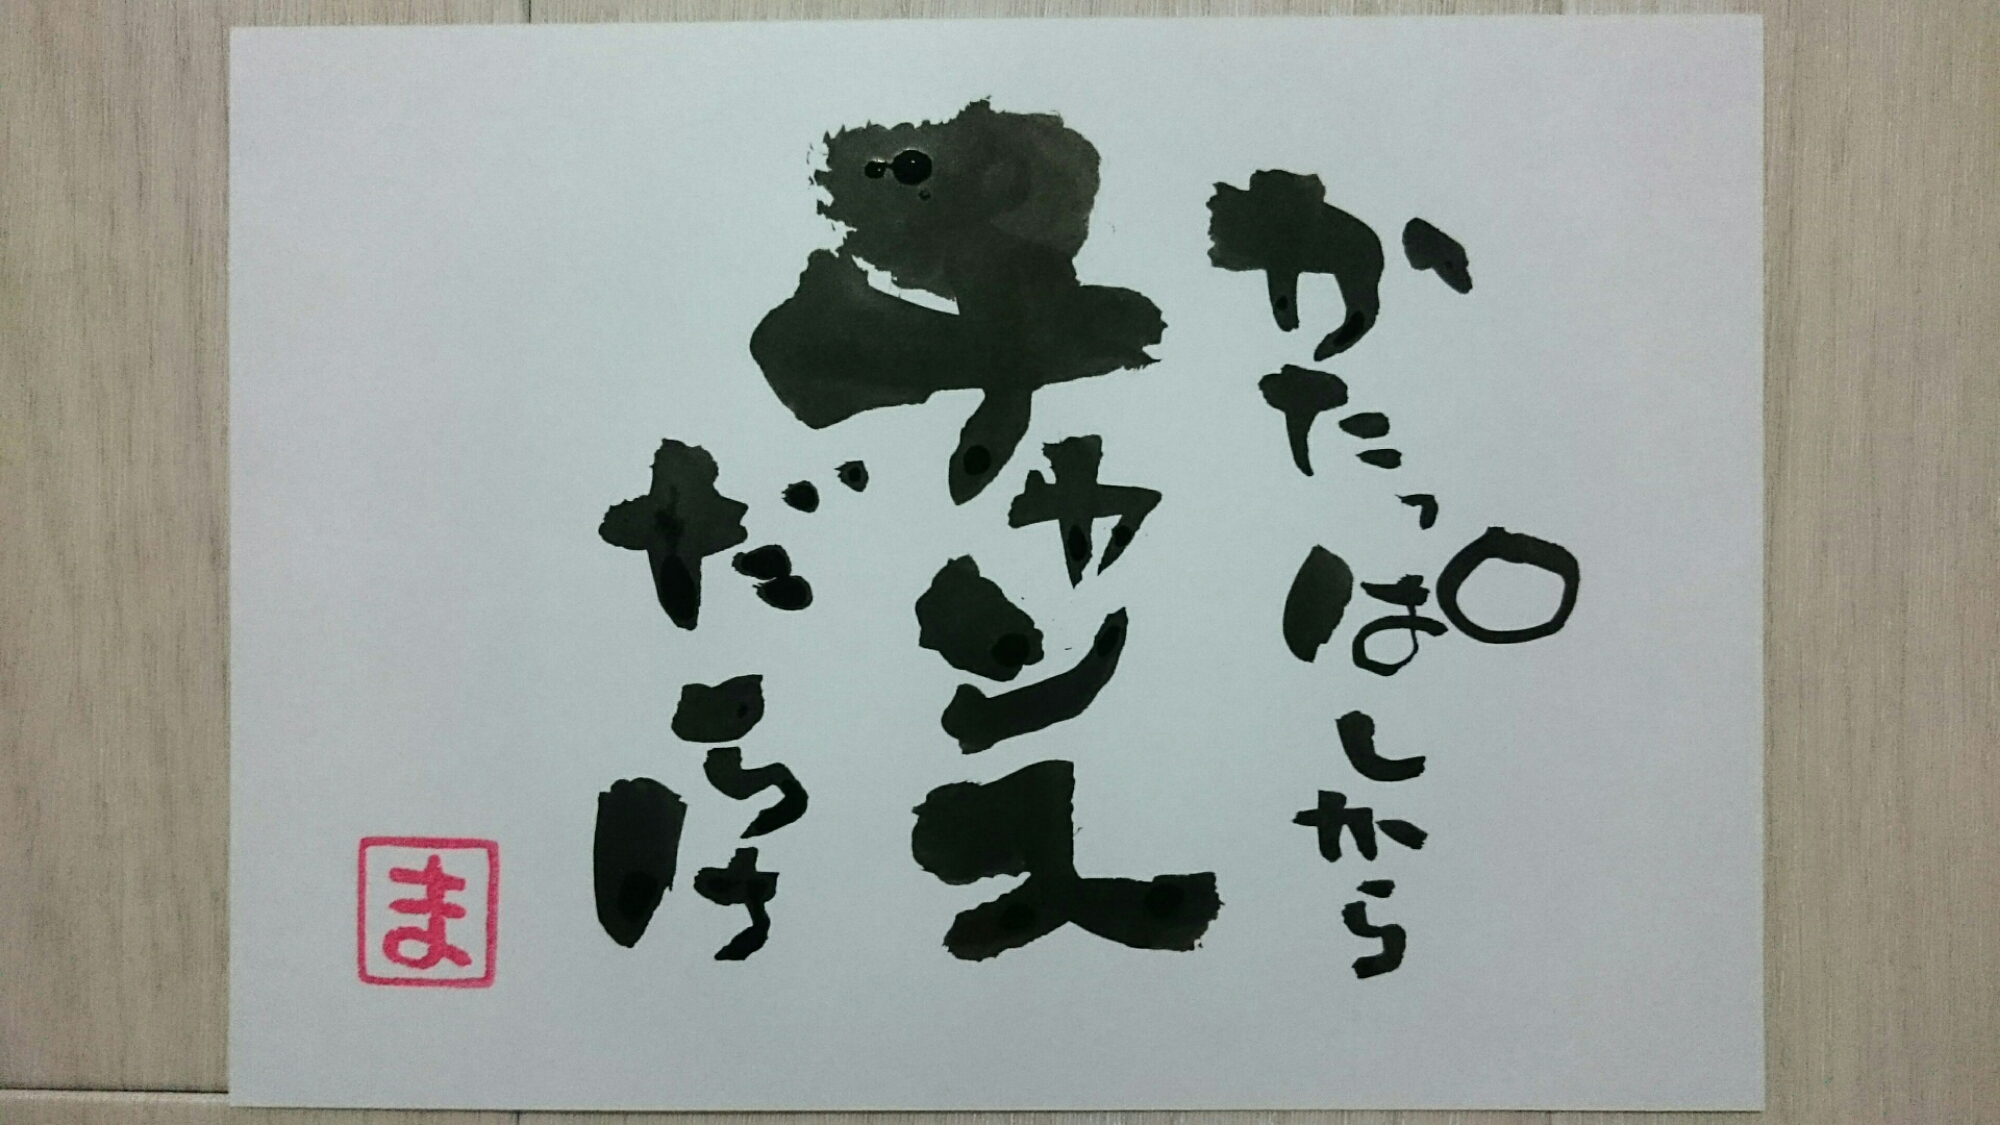 かたっぱしから
チャンス
だらけ
ま